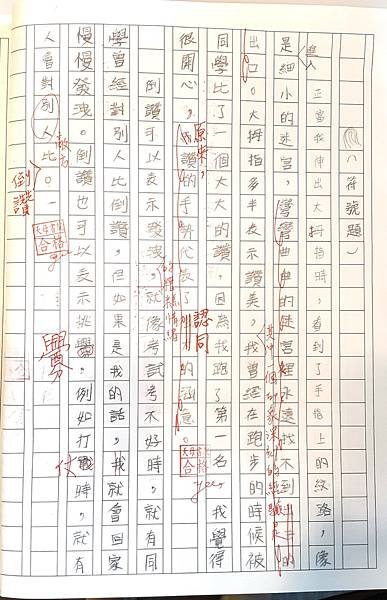 （符號題）
正當我伸出大拇指時，看到了手指上的紋路，像
是細小的迷宮，彎彎曲曲的徒宮裡永遠找不到出口的
進入
出口。大拇指多半表示讚美，我曾經在跑步的時候被
其中一個印象深刻的經驗是
同學比了一個大大的讚，因為我跑了第一名，我覺得
很開心。原來，讚的手勢代表了的涵意。
認同
合格
倒讚可以表示發洩，就像考試考不好時，就有同
的糟糕情緒
學曾經對別人比倒讚，但如果是我的話，我就會回家
慢慢發洩。倒讚也可以表示挑釁，例如打戰時，就有
釁
仗
人會對別人比。
敵方
倒讚
合格